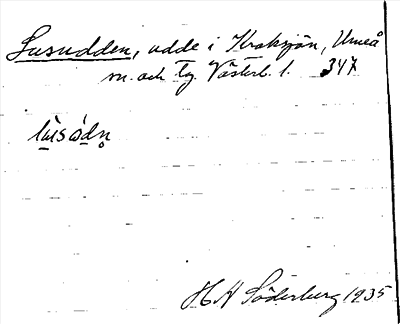 Lusudden, udde i Kroksjön, Umeå
m. och tg. Västerb. l. 347
lu̠sødn̥
H A Söderberg 1935